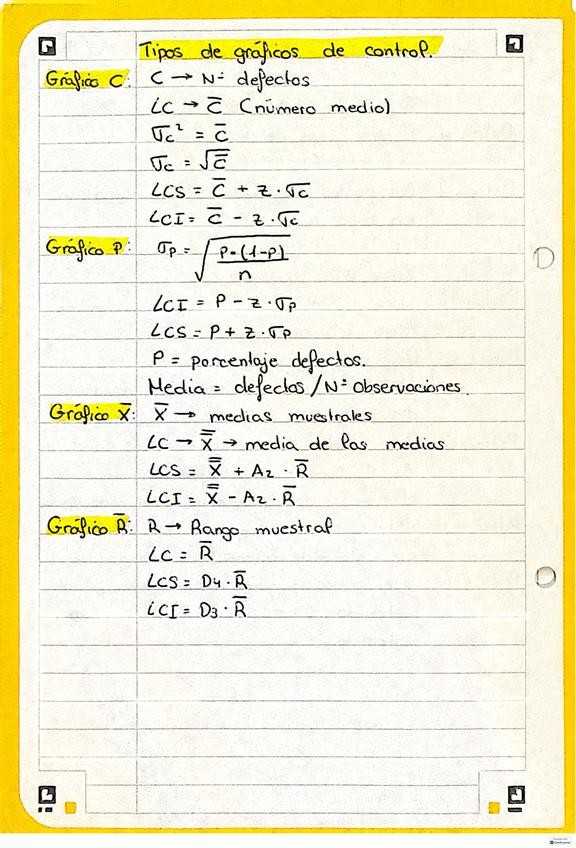 Tipos de gráficos de control.
Gráfico C: C → Nº defectos
LC → C̅ (número medio)
σc² = C̅
σc = √C̅
LCS = C̅ + z · σc
LCI = C̅ - z · σc
Gráfico P: σp = √(P·(1-P)/n)
LCI = P - z · σp
LCS = P + z · σp
P = porcentaje defectos.
Media = defectos / Nº Observaciones.
Gráfico X̅: X̅ → medias muestrales
LC → X̿ → media de las medias
LCS = X̿ + A₂ · R̅
LCI = X̿ - A₂ · R̅
Gráfico R̅: R → Rango muestral
LC = R̅
LCS = D₄ · R̅
LCI = D₃ · R̅